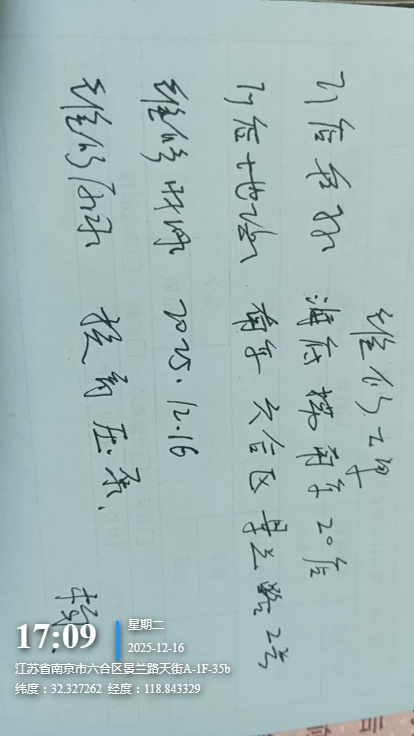 维修工单
门店名称 海底捞南京20店
门店地址 南京六合区景兰路2号
维修时间 2025.12.16
维修内容 换高压泵.
17:09
星期二
2025-12-16
江苏省南京市六合区景兰路天街A-1F-35b
纬度：32.327262 经度：118.843329